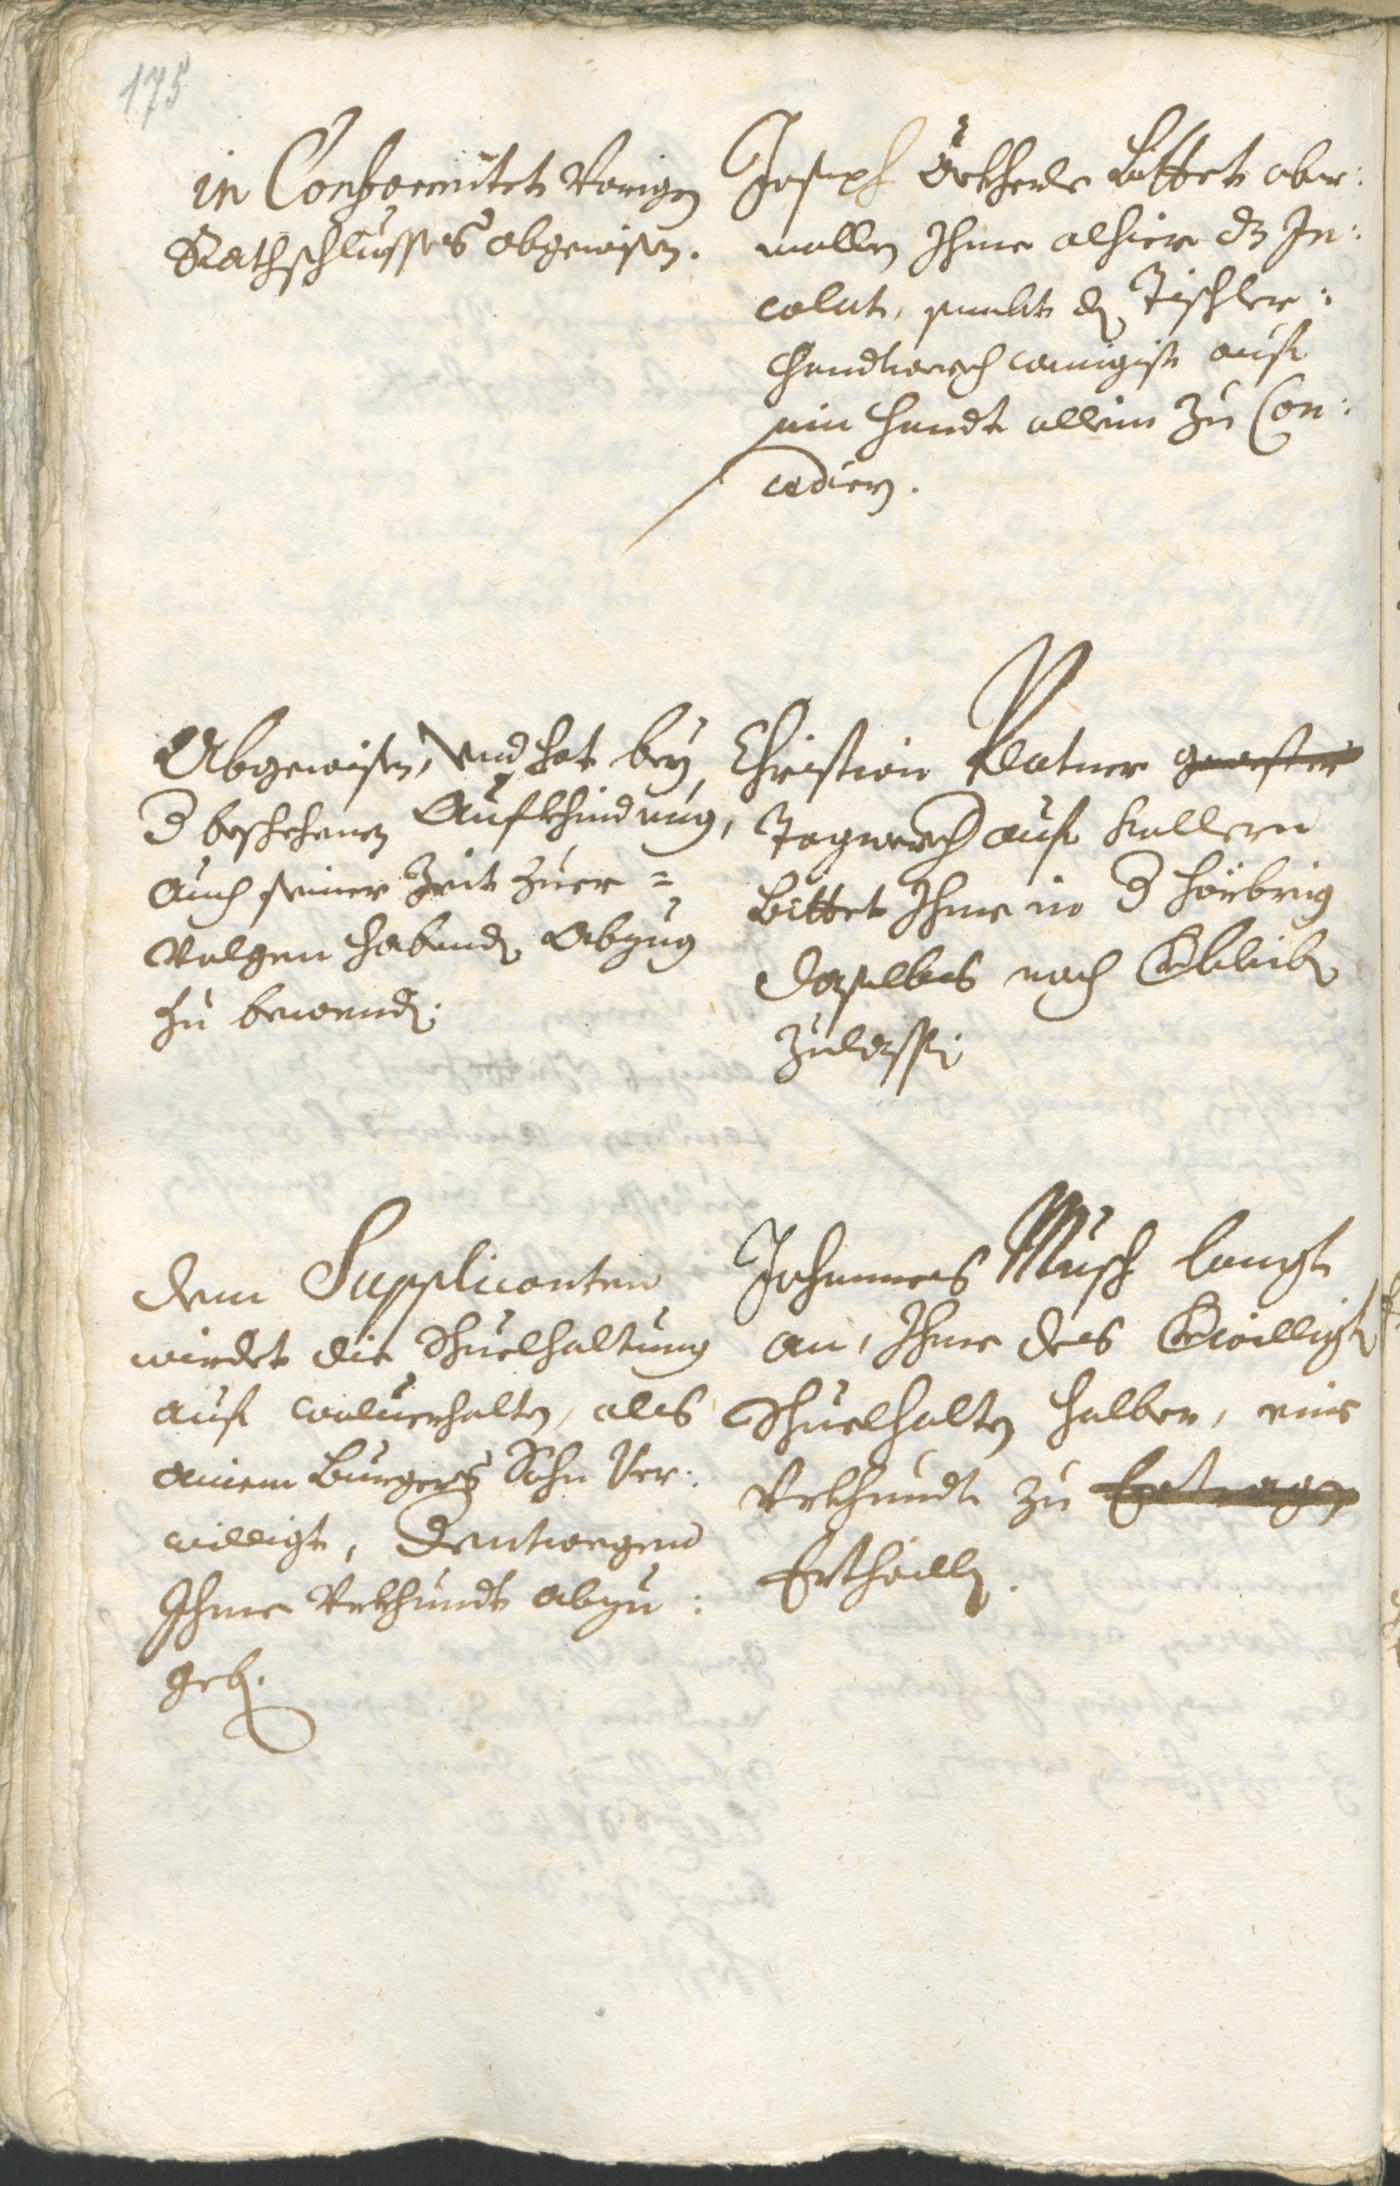 175
in Conformitet Vorigen
Rathschlusses abgewisen.
Joseph Örkherle Bittet aber:
mallen Ihme alhier dz In:
colat, sambt dem Tischler:
Handtwerch wenigist auf
ein handt allein zu Con:
cediern.
Abgewisen, Und hat bey
d beschehenen Aufkhindung,
auch seiner Zeit zuer=
Volgen habenden Abzug
zu bewenden.
Christian Platner gewester
Tagwerch auf Kallern
Bittet Ihme in d Hörbrig
daselbs noch Verbleiben
zulassen
dem Supplicanten
wirdet die Schuelhaltung
auf wolverhalten, als
ainem Burgers Sohn Ver:
willigt, Dentwegen
Ihme Urkhundt abzu:
geben.
Johannes Musch langt
an, Ihme des Verwilligten
Schuelhalten halber, eine
Urkhundt zu
Erthaillen.